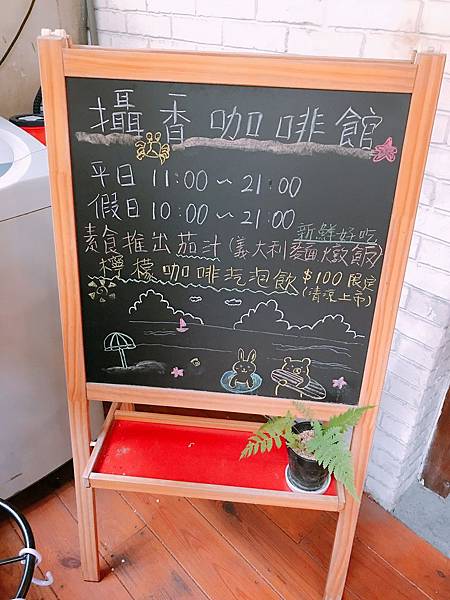 攝香咖啡館
平日 11:00～21:00
假日 10:00～21:00
新鮮好吃
素食推出茄汁(義大利麵燉飯)
檸檬咖啡汽泡飲 $100 限定
(清涼上市)